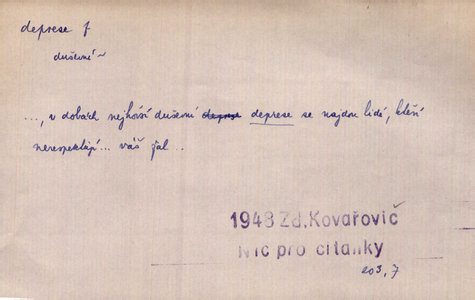 deprese f
duševní ~
..., v dobách nejhorší duševní deprese deprese se najdou lidé, kteří
nerespektují... váš žal...
1948 Zd. Kovařovič
Nic pro čítanky
203, 7